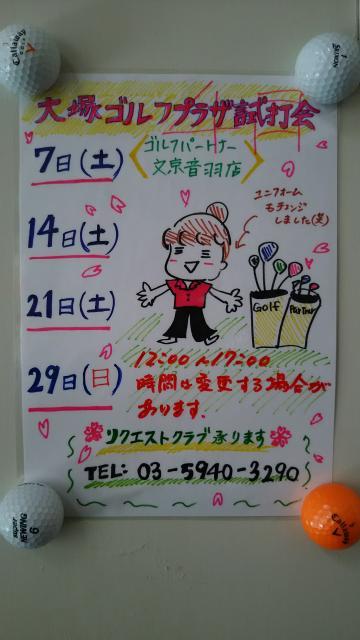 大塚ゴルフプラザ試打会
7日(土)
ゴルフパートナー
文京音羽店
ユニフォーム
もチェンジ
しました(笑)
14日(土)
21日(土)
Golf
Partner
29日(日)
12:00~17:00
時間は変更する場合が
あります.
リクエストクラブ承ります
TEL: 03-5940-3290
Callaway
SRIXON
super
NEWING
6
Callaway